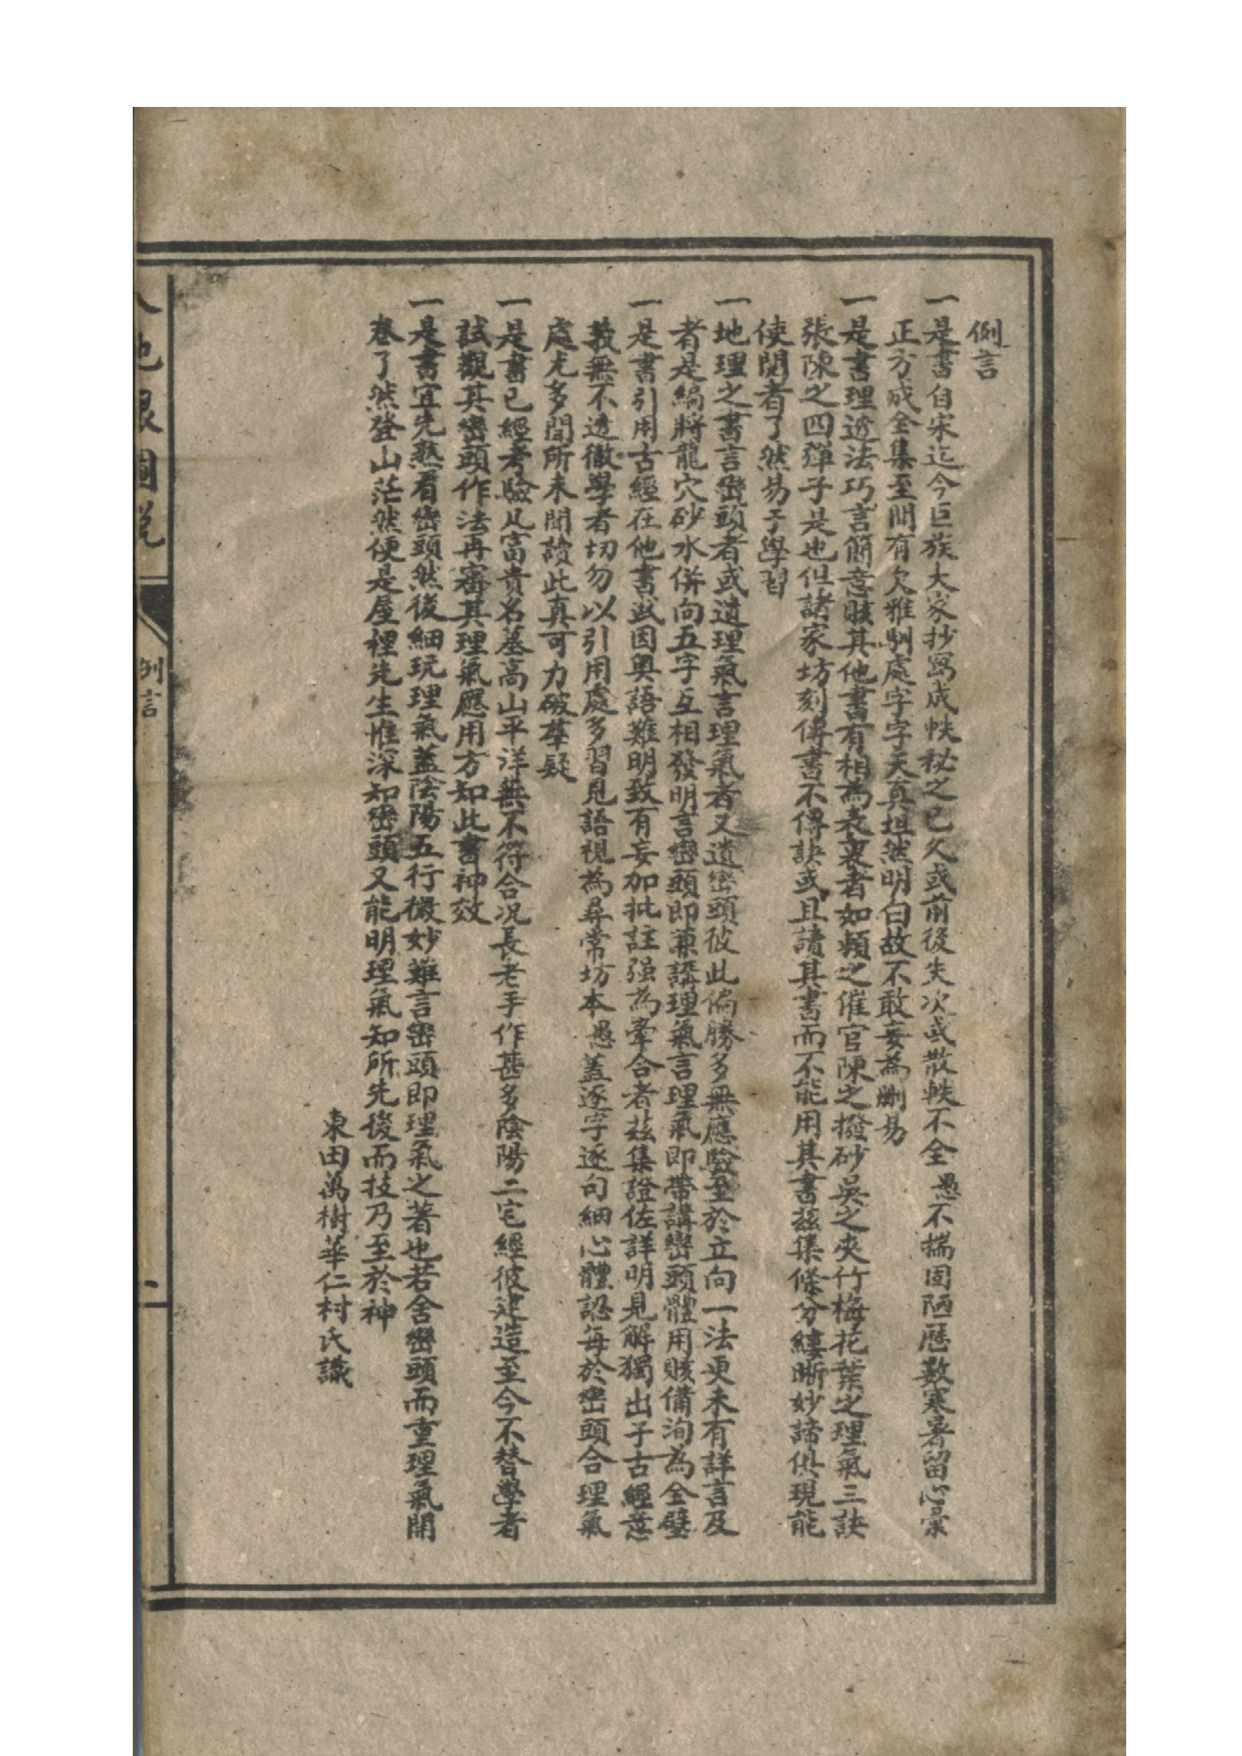 例言
一是書自宋迄今巨族大家抄寫成帙秘之已久或前後失次或散帙不全愚不揣固陋歷數寒暑留心彙
正方成全集至間有欠雅馴處字字天真坦然明白故不敢妄為刪易
一是書理透法巧言簡意賅其他書有相為表裏者如賴之催官陳之撥砂吳之夾竹梅花葉之理氣三訣
張陳之四彈子是也但諸家坊刻傳書不傳訣或且讀其書而不能用其書茲集條分縷晰妙諦俱現能
使閱者了然易于學習
一地理之書言巒頭者或遺理氣言理氣者又遺巒頭彼此偏勝多無應驗至於立向一法更未有詳言及
者是編將龍穴砂水併向五字互相發明言巒頭即兼講理氣言理氣即帶講巒頭體用賅備洵為全璧
一是書引用古經在他書或因奧語難明致有妄加批註强為牽合者茲集證佐詳明見解獨出于古經意
義無不透徹學者切勿以引用處多習見語視為尋常坊本愚蓋逐字逐句細心體認每於巒頭合理氣
處尤多聞所未聞讀此真可力破羣疑
一是書已經考驗凡富貴名墓高山平洋無不符合况長老手作甚多陰陽二宅經彼建造至今不替學者
試觀其巒頭作法再審其理氣應用方知此書神效
一是書宜先熟看巒頭然後細玩理氣蓋陰陽五行微妙難言巒頭即理氣之著也若舍巒頭而重理氣開
卷了然登山茫然便是屋裡先生惟深知巒頭又能明理氣知所先後而技乃至於神
東田萬樹華仁村氏識
地眼圖說
例言
二